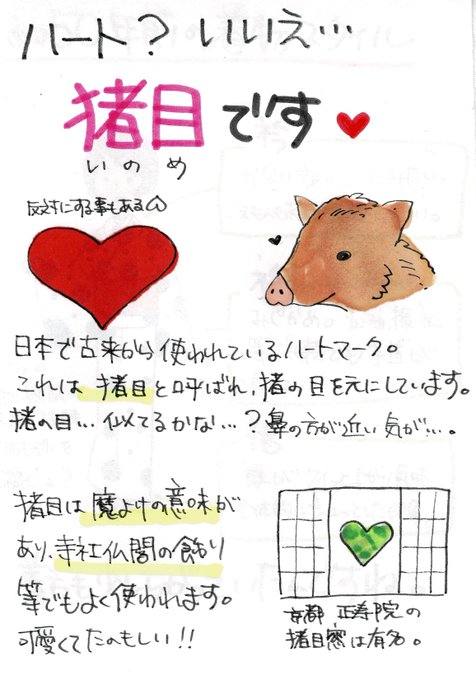 ハート？いいえ…
猪目です
いのめ
反対にする事もある
日本で古来から使われているハートマーク。
これは 猪目と呼ばれ、猪の目を元にしています。
猪の目…似てるかな…？鼻の方が近い気が…。
猪目は魔よけの意味が
あり、寺社仏閣の飾り
等でもよく使われます。
可愛くてたのもしい!!
京都 正寿院の
猪目窓は有名。